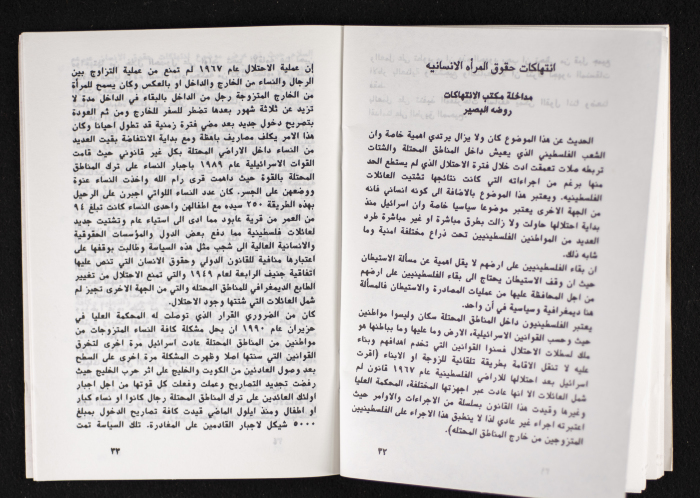 انتهاكات حقوق المرأه الانسانيه
مداخلة مكتب الانتهاكات
روضه البصير
الحديث عن هذا الموضوع كان ولا يزال يرتدي اهمية خاصة وان
الشعب الفلسطيني الذي يعيش داخل المناطق المحتلة والشتات
تربطه صلات تعمقت ادت خلال فترة الاحتلال الذي لم يستطع الحد
منها برغم من اجراءاته التي كانت نتائجها تشتيت العائلات
الفلسطينيه. ويعتبر هذا الموضوع بالاضافة الى كونه انساني فانه
من الجهة الاخرى يعتبر موضوعا سياسيا خاصة وان اسرائيل منذ
بداية احتلالها حاولت ولا زالت بطرق مباشرة او غير مباشرة طرد
العديد من المواطنين الفلسطينيين تحت ذراع مختلفة امنية وما
شابه ذلك.
ان بقاء الفلسطينيين على ارضهم لا يقل اهمية عن مسألة الاستيطان
حيث ان وقف الاستيطان يحتاج الى بقاء الفلسطينيين على ارضهم
من اجل المحافظة عليها من عمليات المصادرة والاستيطان فالمسألة
هنا ديمغرافية وسياسية في أن واحد.
يعتبر الفلسطينيون داخل المناطق المحتلة سكان وليسوا مواطنين
حيث وحسب القوانين الاسرائيلية، الارض وما عليها وما بباطنها هو
ملك لسطلات الاحتلال فسنوا القوانين التي تخدم اهدافهم وبناء
عليه لا تنقل الاقامة بطريقة تلقائية للزوجة او الابناء (اقرت
اسرائيل بعد احتلالها للاراضي الفلسطينية عام ١٩٦٧ قانون لم
شمل العائلات الا انها عادت عبر اجهزتها المختلفة، المحكمة العليا
وغيرها وقيدت هذا القانون بسلسلة من الاجراءات والاوامر حيث
اعتبرته اجراء غير عادي لذا لا ينطبق هذا الاجراء على الفلسطينيين
المتزوجين من خارج المناطق المحتله).
٣٢
إن عملية الاحتلال عام ١٩٦٧ لم تمنع من عملية التزاوج بين
الرجال والنساء من الخارج والداخل او بالعكس وكان يسمح للمرأة
من الخارج المتزوجة رجل من الداخل بالبقاء في الداخل مدة لا
تزيد عن ثلاثة شهور بعدها تضطر للسفر للخارج ومن ثم العودة
بتصريح دخول جديد بعد مضي فترة زمنية قد تطول احيانا وكان
هذا الامر يكلف مصاريف باهظة ومع بداية الانتفاضة بقيت العديد
من النساء داخل الاراضي المحتلة بكل غير قانوني حيث قامت
القوات الاسرائيلية عام ١٩٨٩ باجبار النساء على ترك المناطق
المحتلة بالقوة حيث داهمت قرى رام الله واخذت النساء عنوة
ووضعهن على الجسر. كان عدد النساء اللواتي اجبرن على الرحيل
بهذه الطريقة ٢٥٠ سيده مع اطفالهن واحدى النساء كانت تبلغ ٩٤
من العمر من قرية عابود مما ادى الى استياء عام وتشتيت جديد
لعائلات فلسطينية مما دفع بعض الدول والمؤسسات الحقوقية
والانسانية العالية الى شجب مثل هذه السياسة وطالبت بوقفها على
اعتبارها منافية للقانون الدولي وحقوق الانسان التي تنص عليها
اتفاقية جنيف الرابعة لعام ١٩٤٩ والتي تمنع الاحتلال من تغيير
الطابع الديمغرافي للمناطق المحتله والتي من الجهة الاخرى تجيز لم
شمل العائلات التي شتتها وجود الاحتلال.
كان من الضروري القرار الذي توصلت له المحكمة العليا في
حزيران عام ١٩٩٠ ان يحل مشكلة كافة النساء المتزوجات من
مواطنين من المناطق المحتلة عادت اسرائيل مرة اخرى لتخرق
القوانين التي سنتها اصلا وظهرت المشكلة مرة اخرى على السطح
بعد وصول العائدين من الكويت والخليج على اثر حرب الخليج حيث
رفضت تجديد التصاريح وعمات وفعلت كل قوتها من اجل اجبار
اولئك العائدين على ترك المناطق المحتلة رجال كانوا او نساء كبار
او اطفال ومنذ ايلول الماضي قيدت كافة تصاريح الدخول بمبلغ
٥٠٠٠ شيكل لاجبار القادمين على المغادرة. تلك السياسة تمت
٣٣